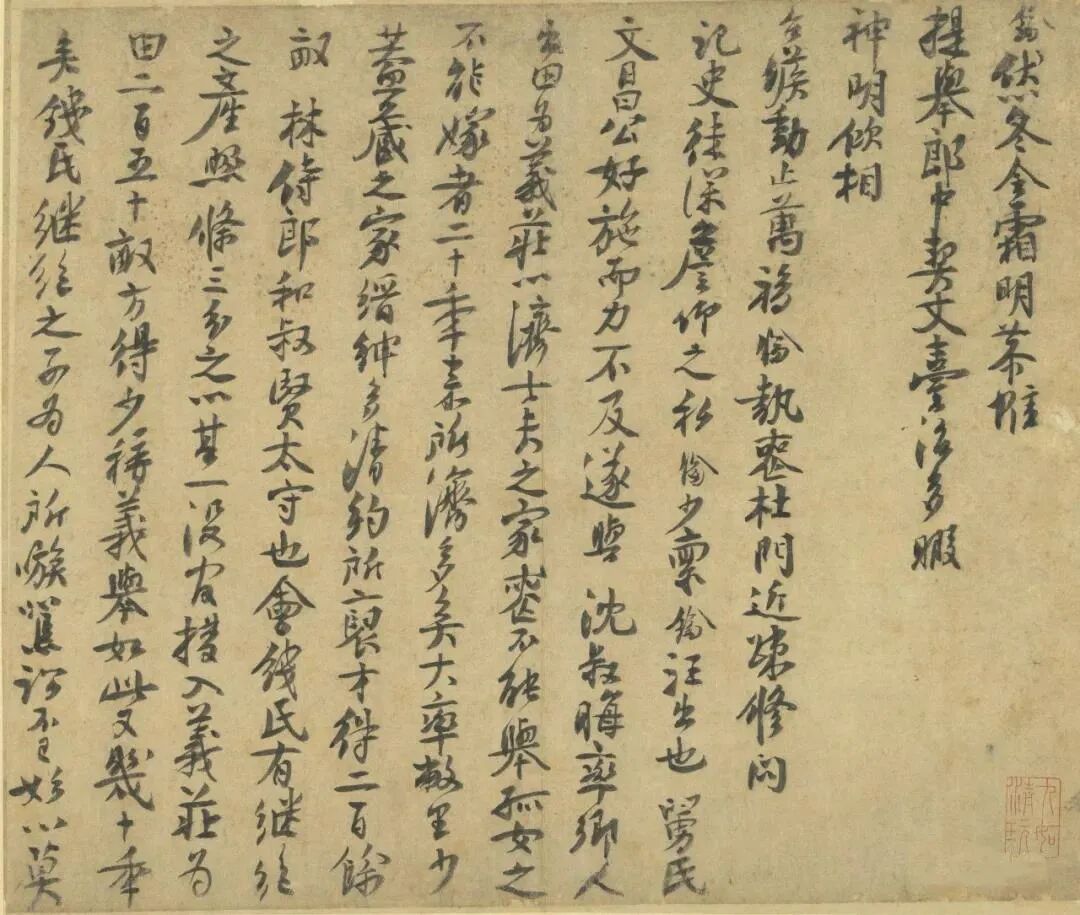 鑰伏以冬令霜明恭惟
提舉郎中契丈臺治多暇
神明佽相
台候動止萬福鑰執喪杜門近疎修問
記史徒深詹仰之私鑰少稟鑰汪出也舅氏
文昌公好施而力不及遂與沈叔晦率鄉人
出田為義莊以濟士夫之家喪不能舉孤女之
不能嫁者二十年來所濟多矣大率敝里少
蓋藏之家縉紳多清約所裒才得二百餘
畝林侍郎和叔賢太守也會錢氏有繼絕
之產照條三分之以其一沒官撥入義莊為
田二百五十畝方得少稱義舉如此又幾十年
矣錢氏繼絕之子為人所嗾駕詞不已始以莫